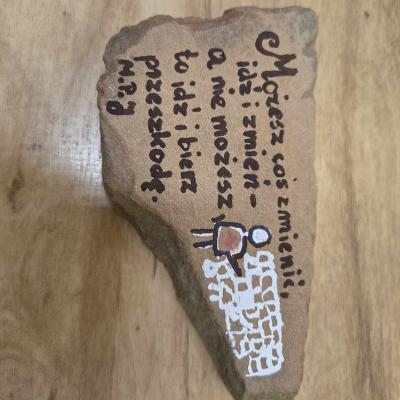 Możesz coś zmienić,
idź i zmień -
a nie możesz,
to idź i bierz
przeszkodę.
M.P.J